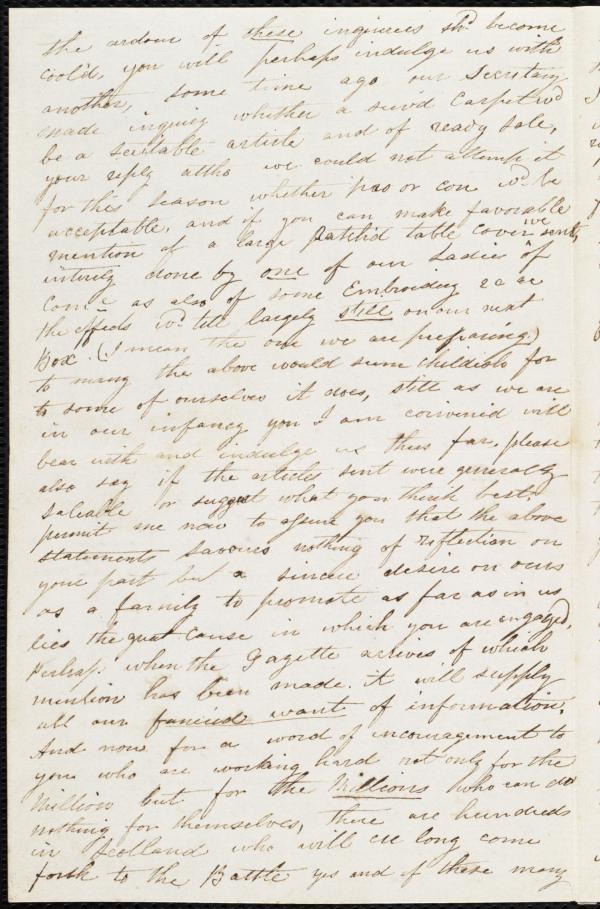 the ardour of these inquiries shd. become
cool'd, you will perhaps indulge us with
another, some time ago our Secretary
made inquiry whether a sew'd Carpet wd
be a suitable article and of ready sale,
your reply altho we could not attempt it
for this season whether pro or con wd. be
acceptable, and if you can make favorable
mention of a large patch'd table cover we sent,
intirely done by one of our Ladies of
Come as also of some Embroidery &c &c
the effects wd. tell largely still on our next
Box. (I mean the one we are preparing.)
to many the above would seem childish for
to some of ourselves it does, still as we are
in our infancy you I am convinced will
bear with and indulge us thus far, please
also say if the articles sent were generally
saleable or suggest what you think best,
permit me now to assure you that the above
statements savours nothing of reflection on
your part but a sincere desire on ours
as a family to promote as far as in us
lies the great cause in which you are engaged,
Perhaps when the Gazette arrives of which
mention has been made. it will supply
all our fancied want of information,
And now for a word of incouragement to
you who are working hard not only for the
Million but for the Millions who can do
nothing for themselves, there are hundreds
in Scotland who will ere long come
forth to the Battle yes and if these many